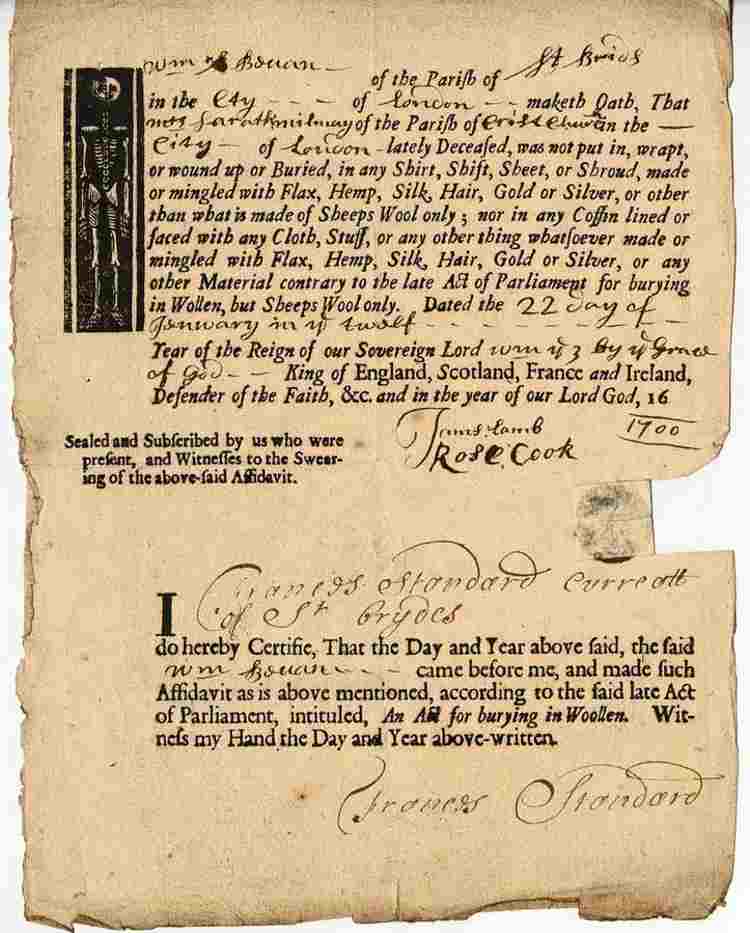 Wm Bevan
of the Pariſh of St Brids
in the Cty - - - of London - - maketh Oath, That
mrs Sarath milway of the Pariſh of Crist Church in the —
City - of London - lately Deceaſed, was not put in, wrapt,
or wound up or Buried, in any Shirt, Shift, Sheet, or Shroud, made
or mingled with Flax, Hemp, Silk, Hair, Gold or Silver, or other
than what is made of Sheeps Wool only; nor in any Coffin lined or
faced with any Cloth, Stuff, or any other thing whatſoever made or
mingled with Flax, Hemp, Silk, Hair, Gold or Silver, or any
other Material contrary to the late Act of Parliament for burying
in Wollen, but Sheeps Wool only. Dated the 22 day of
Jenwary in ye twelf - - - - - -
Year of the Reign of our Sovereign Lord wm ye 3 by ye Grace
of God - - King of England, Scotland, France and Ireland,
Defender of the Faith, &c. and in the year of our Lord God, 16
1700
Sealed and Subſcribed by us who were
preſent, and Witneſſes to the Swear-
ing of the above-ſaid Affidavit.
Jams Lamb
Rose Cook
I Frances Standard Curreatt
of St Brydes
do hereby Certifie, That the Day and Year above ſaid, the ſaid
Wm Bevan - - - came before me, and made ſuch
Affidavit as is above mentioned, according to the ſaid late Act
of Parliament, intituled, An Act for burying in Woollen. Wit-
neſs my Hand the Day and Year above-written.
Frances Standard